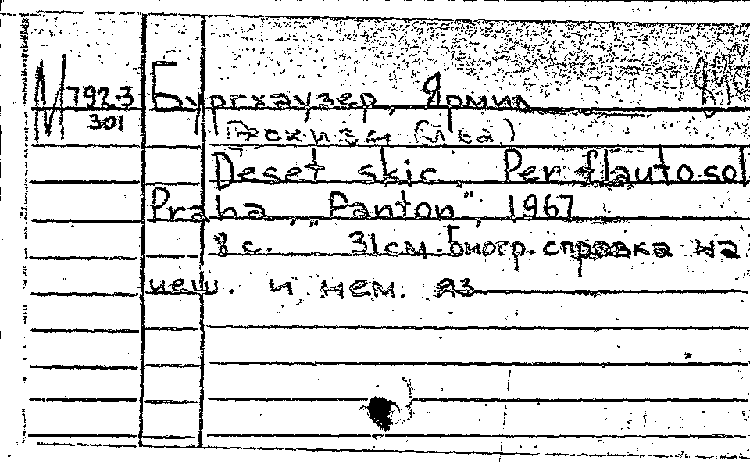 М 792-3
301
Бургхаузер, Ярмил
Deset skic. Per flauto sol
Praha, "Panton", 1967
8 с. 31 см. Биогр. справка на
чеш. и нем. яз